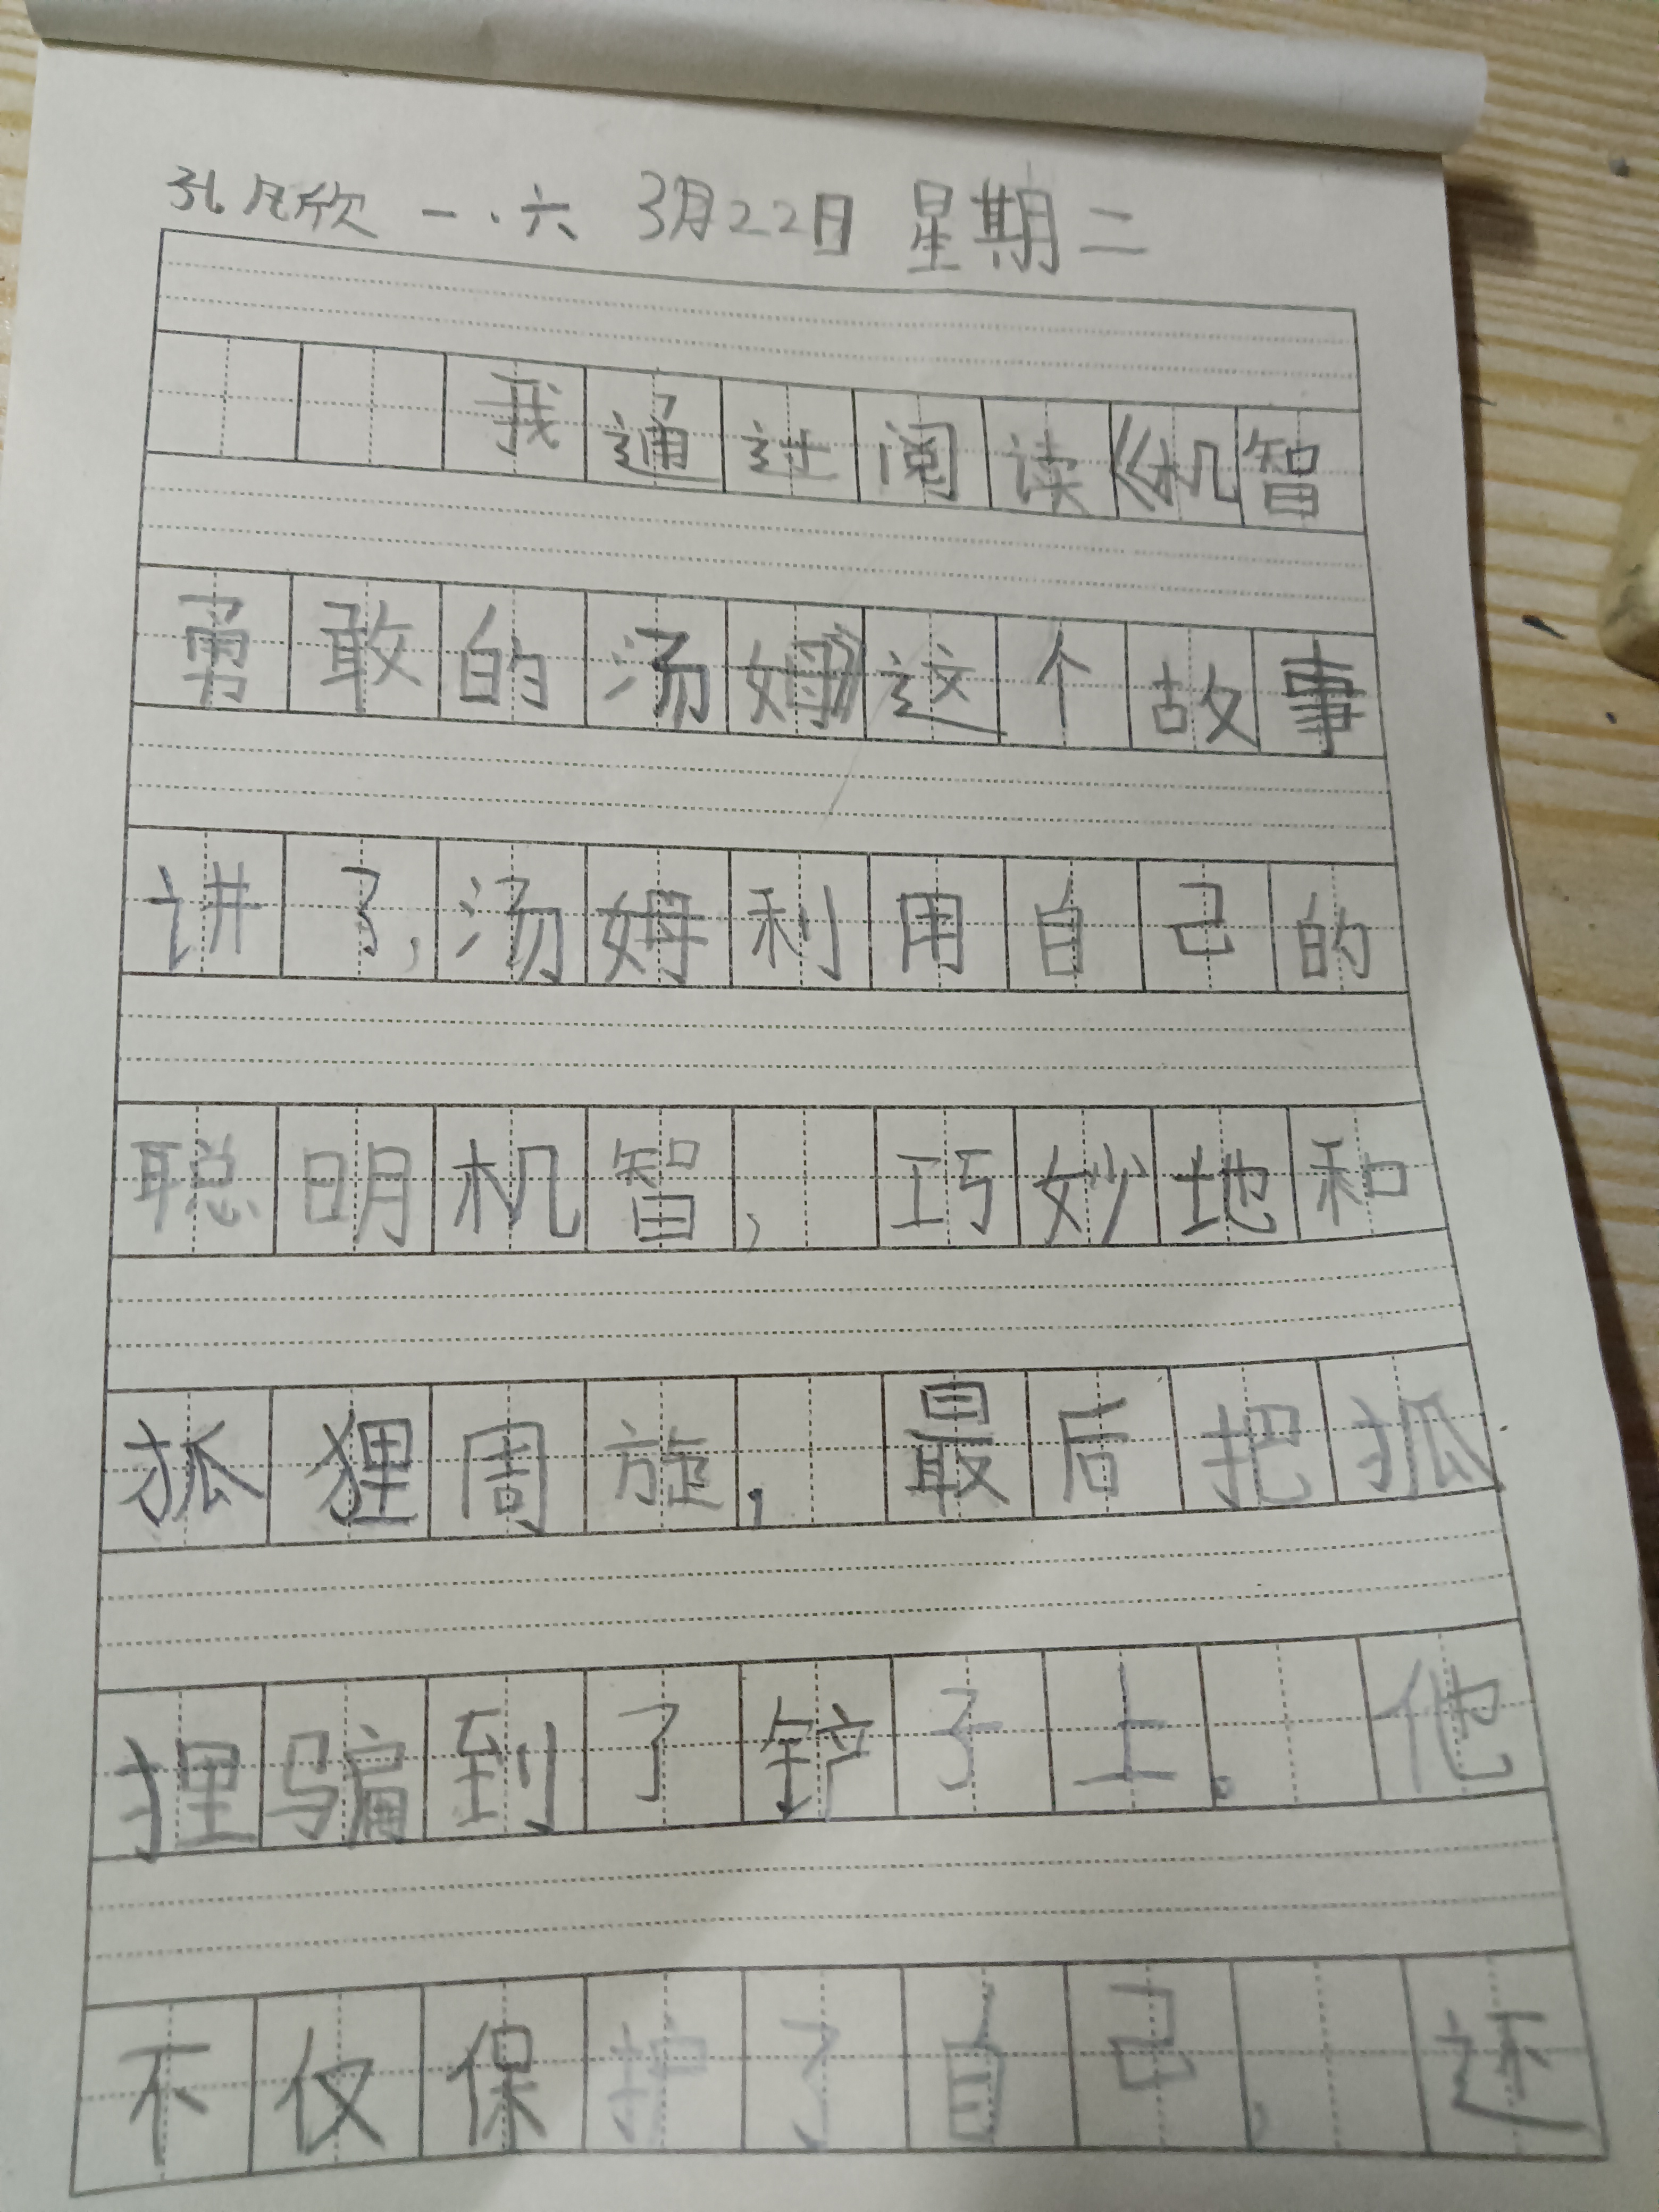 孔凡欣 一.六 3月22日 星期二
我通过阅读《机智
勇敢的汤姆》这个故事
讲了,汤姆利用自己的
聪明机智,巧妙地和
狐狸周旋,最后把狐
狸骗到了铲子上。他
不仅保护了自己,还